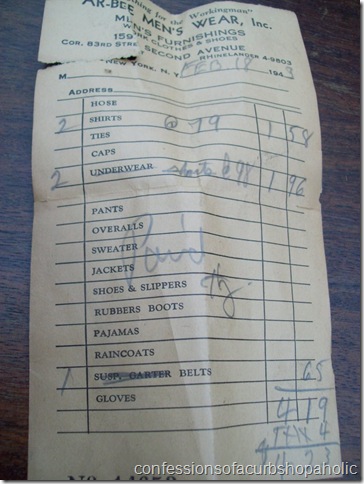 Clothing for the Workingman"
AR-BEE MEN'S WEAR, Inc.
MEN'S FURNISHINGS
WORK CLOTHES & SHOES
159
SECOND AVENUE
COR. 83RD STREET
RHINELANDER 4-9803
NEW YORK, N. Y. FEB 18 1943
M
ADDRESS
HOSE
2 SHIRTS @ 79 1 58
TIES
CAPS
2 UNDERWEAR shorts @ 98 1 96
PANTS
OVERALLS
Paid
SWEATER
JACKETS
SHOES & SLIPPERS
RUBBERS BOOTS
PAJAMAS
RAINCOATS
1 SUSP. GARTER BELTS 65
GLOVES 4 19
TAX 4
4 23
confessionsofacurbshopaholic